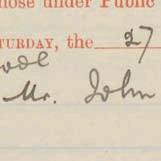 those under Public
TURDAY, the 27
Mr. John